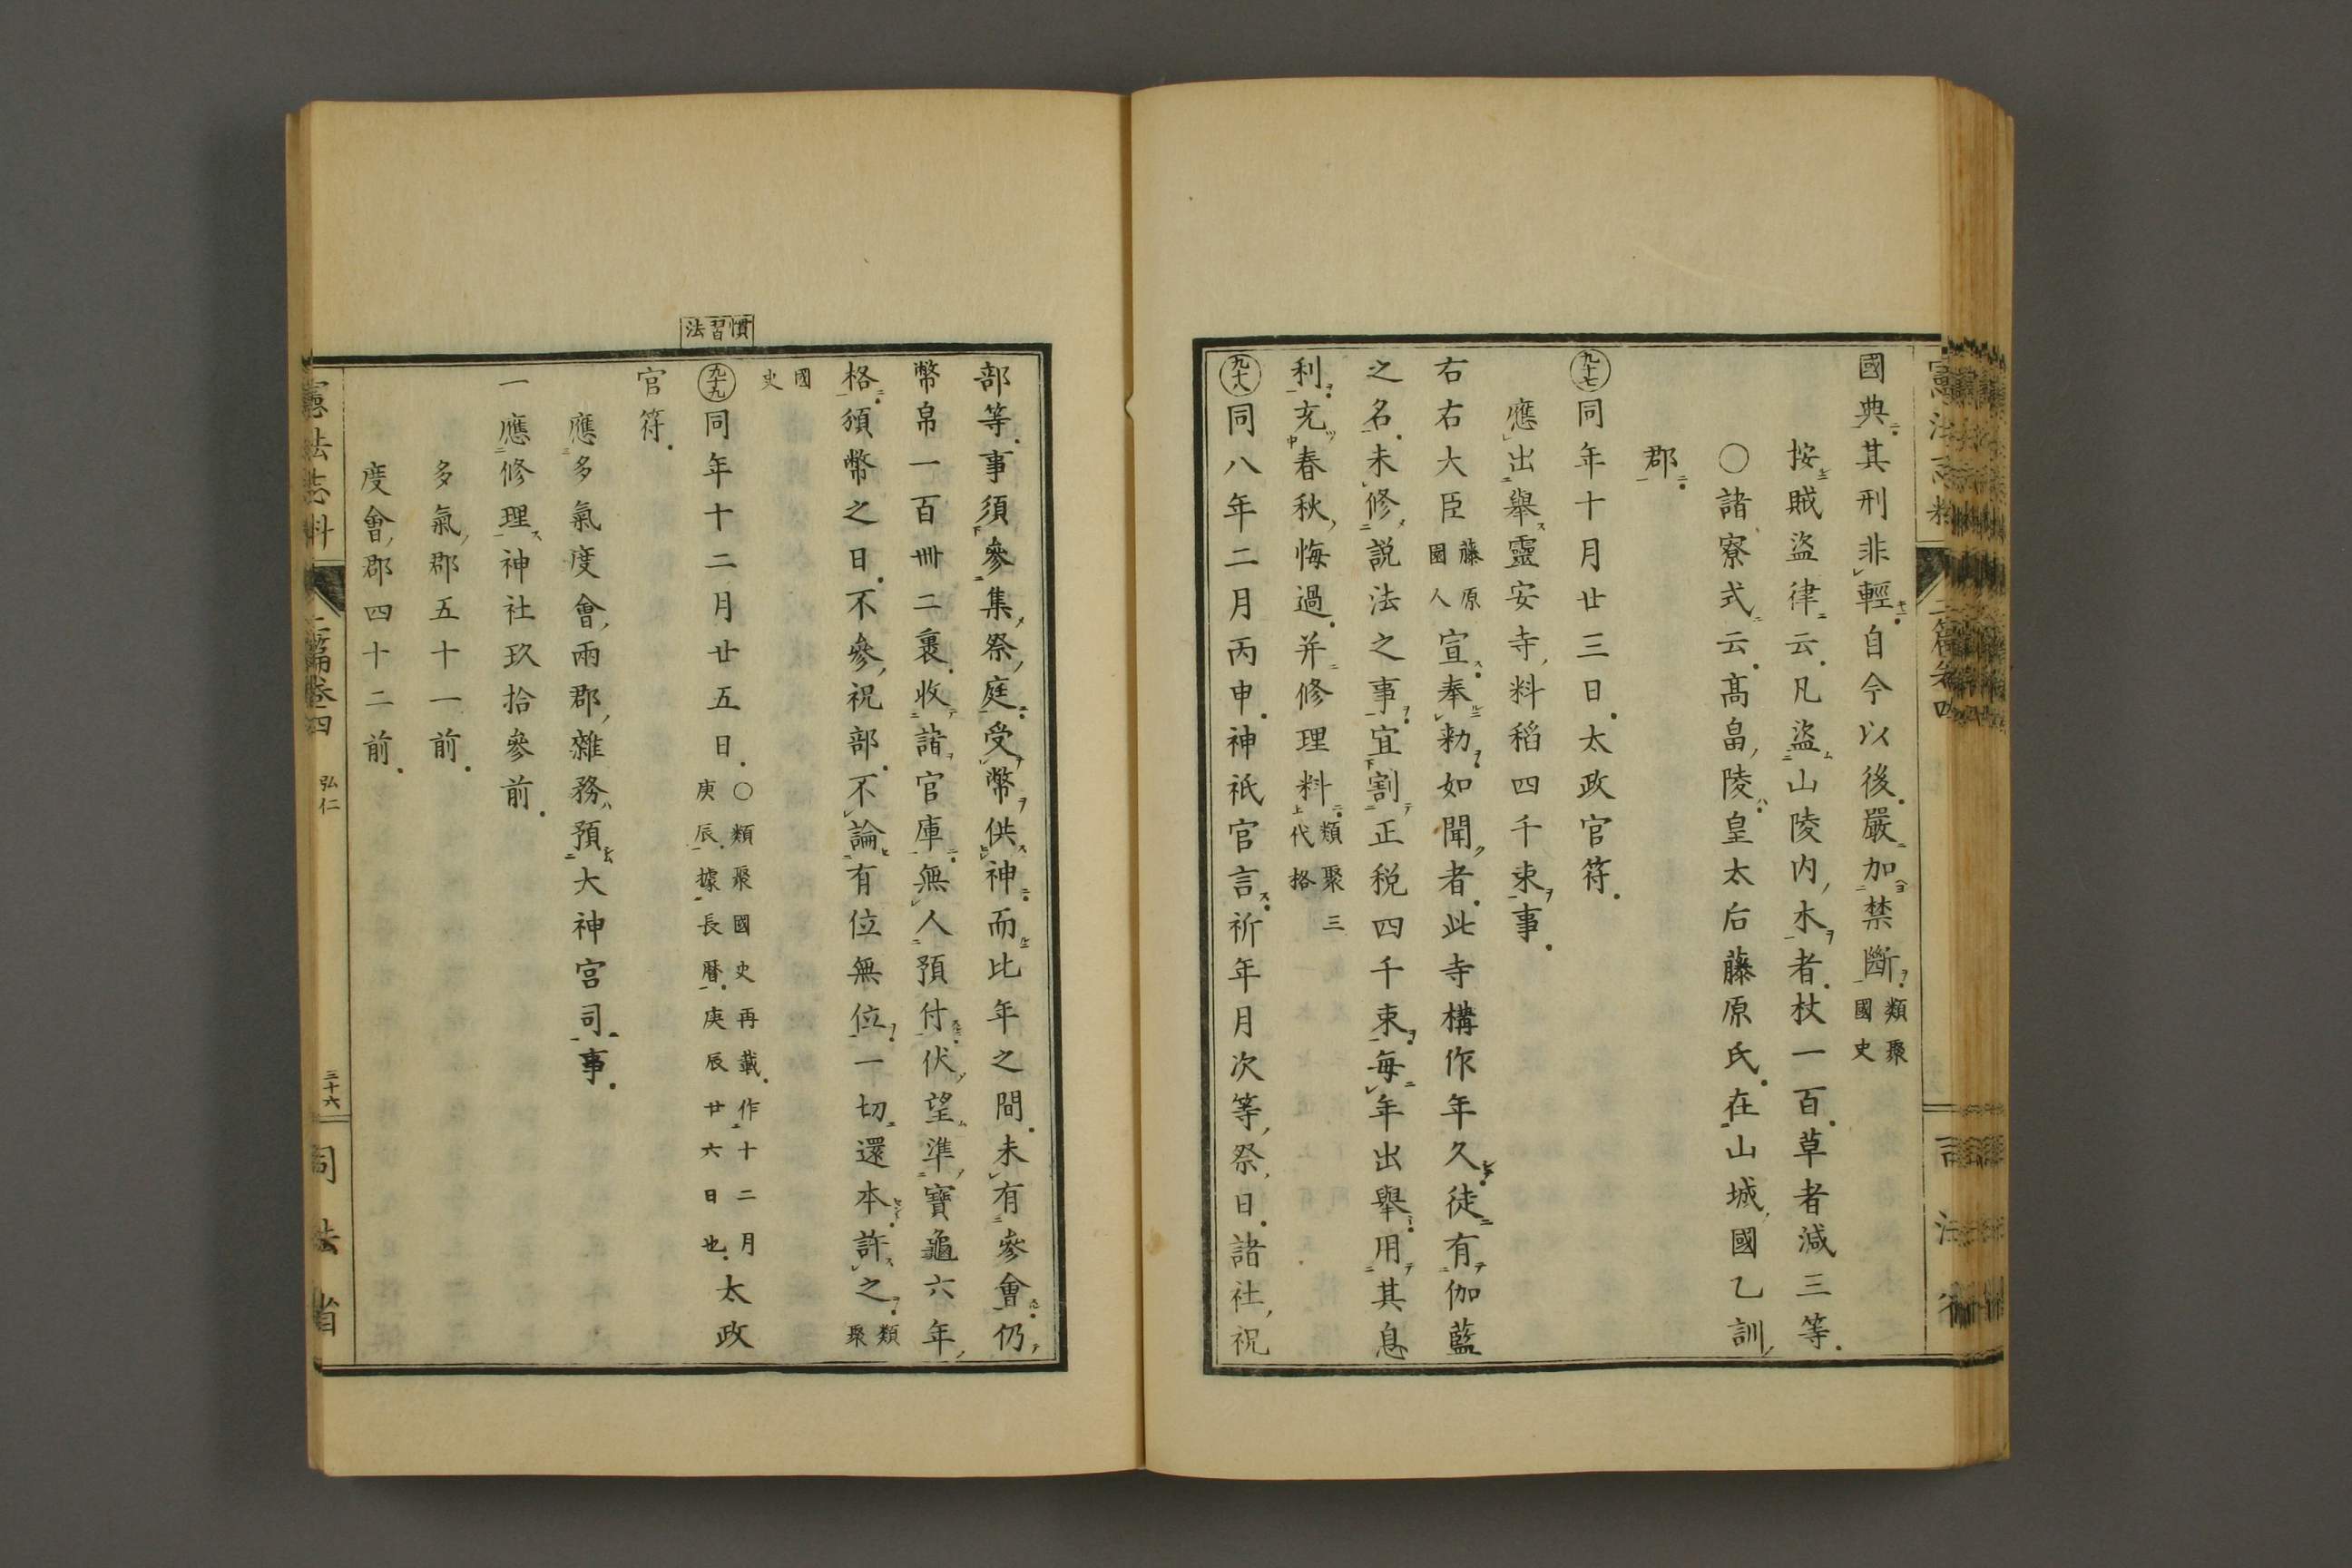 國典其刑非輕自今以後嚴加禁斷類聚國史
按賊盜律云凡盜山陵内木者杖一百草者減三等
○諸寮式云髙畠陵皇太后藤原氏在山城國乙訓
郡
九十七同年十月廿三日太政官符
應出舉靈安寺料稻四千束事
右右大臣藤原園人宣奉勅如聞者此寺構作年久徒有伽藍
之名未修說法之事宜割正税四千束每年出舉用其息
利充春秋悔過并修理料類聚三代格
九十八同八年二月丙申神祇官言祈年月次等祭日諸社祝
部等事須參集祭庭受幣供神而比年之間未有參會仍
幣帛一百卌二裹收諸官庫無人預付伏望準寶龜六年
格頒幣之日不參祝部不論有位無位一切還本許之類聚
國史
慣習法
九十九同年十二月廿五日○類聚國史再載作十二月庚辰據長曆庚辰廿六日也太政
官符
應多氣度會兩郡雜務預大神宮司事
一應修理神社玖拾參前
多氣郡五十一前
度會郡四十二前
憲法志料 二篇卷四 弘仁 三十六 司法省